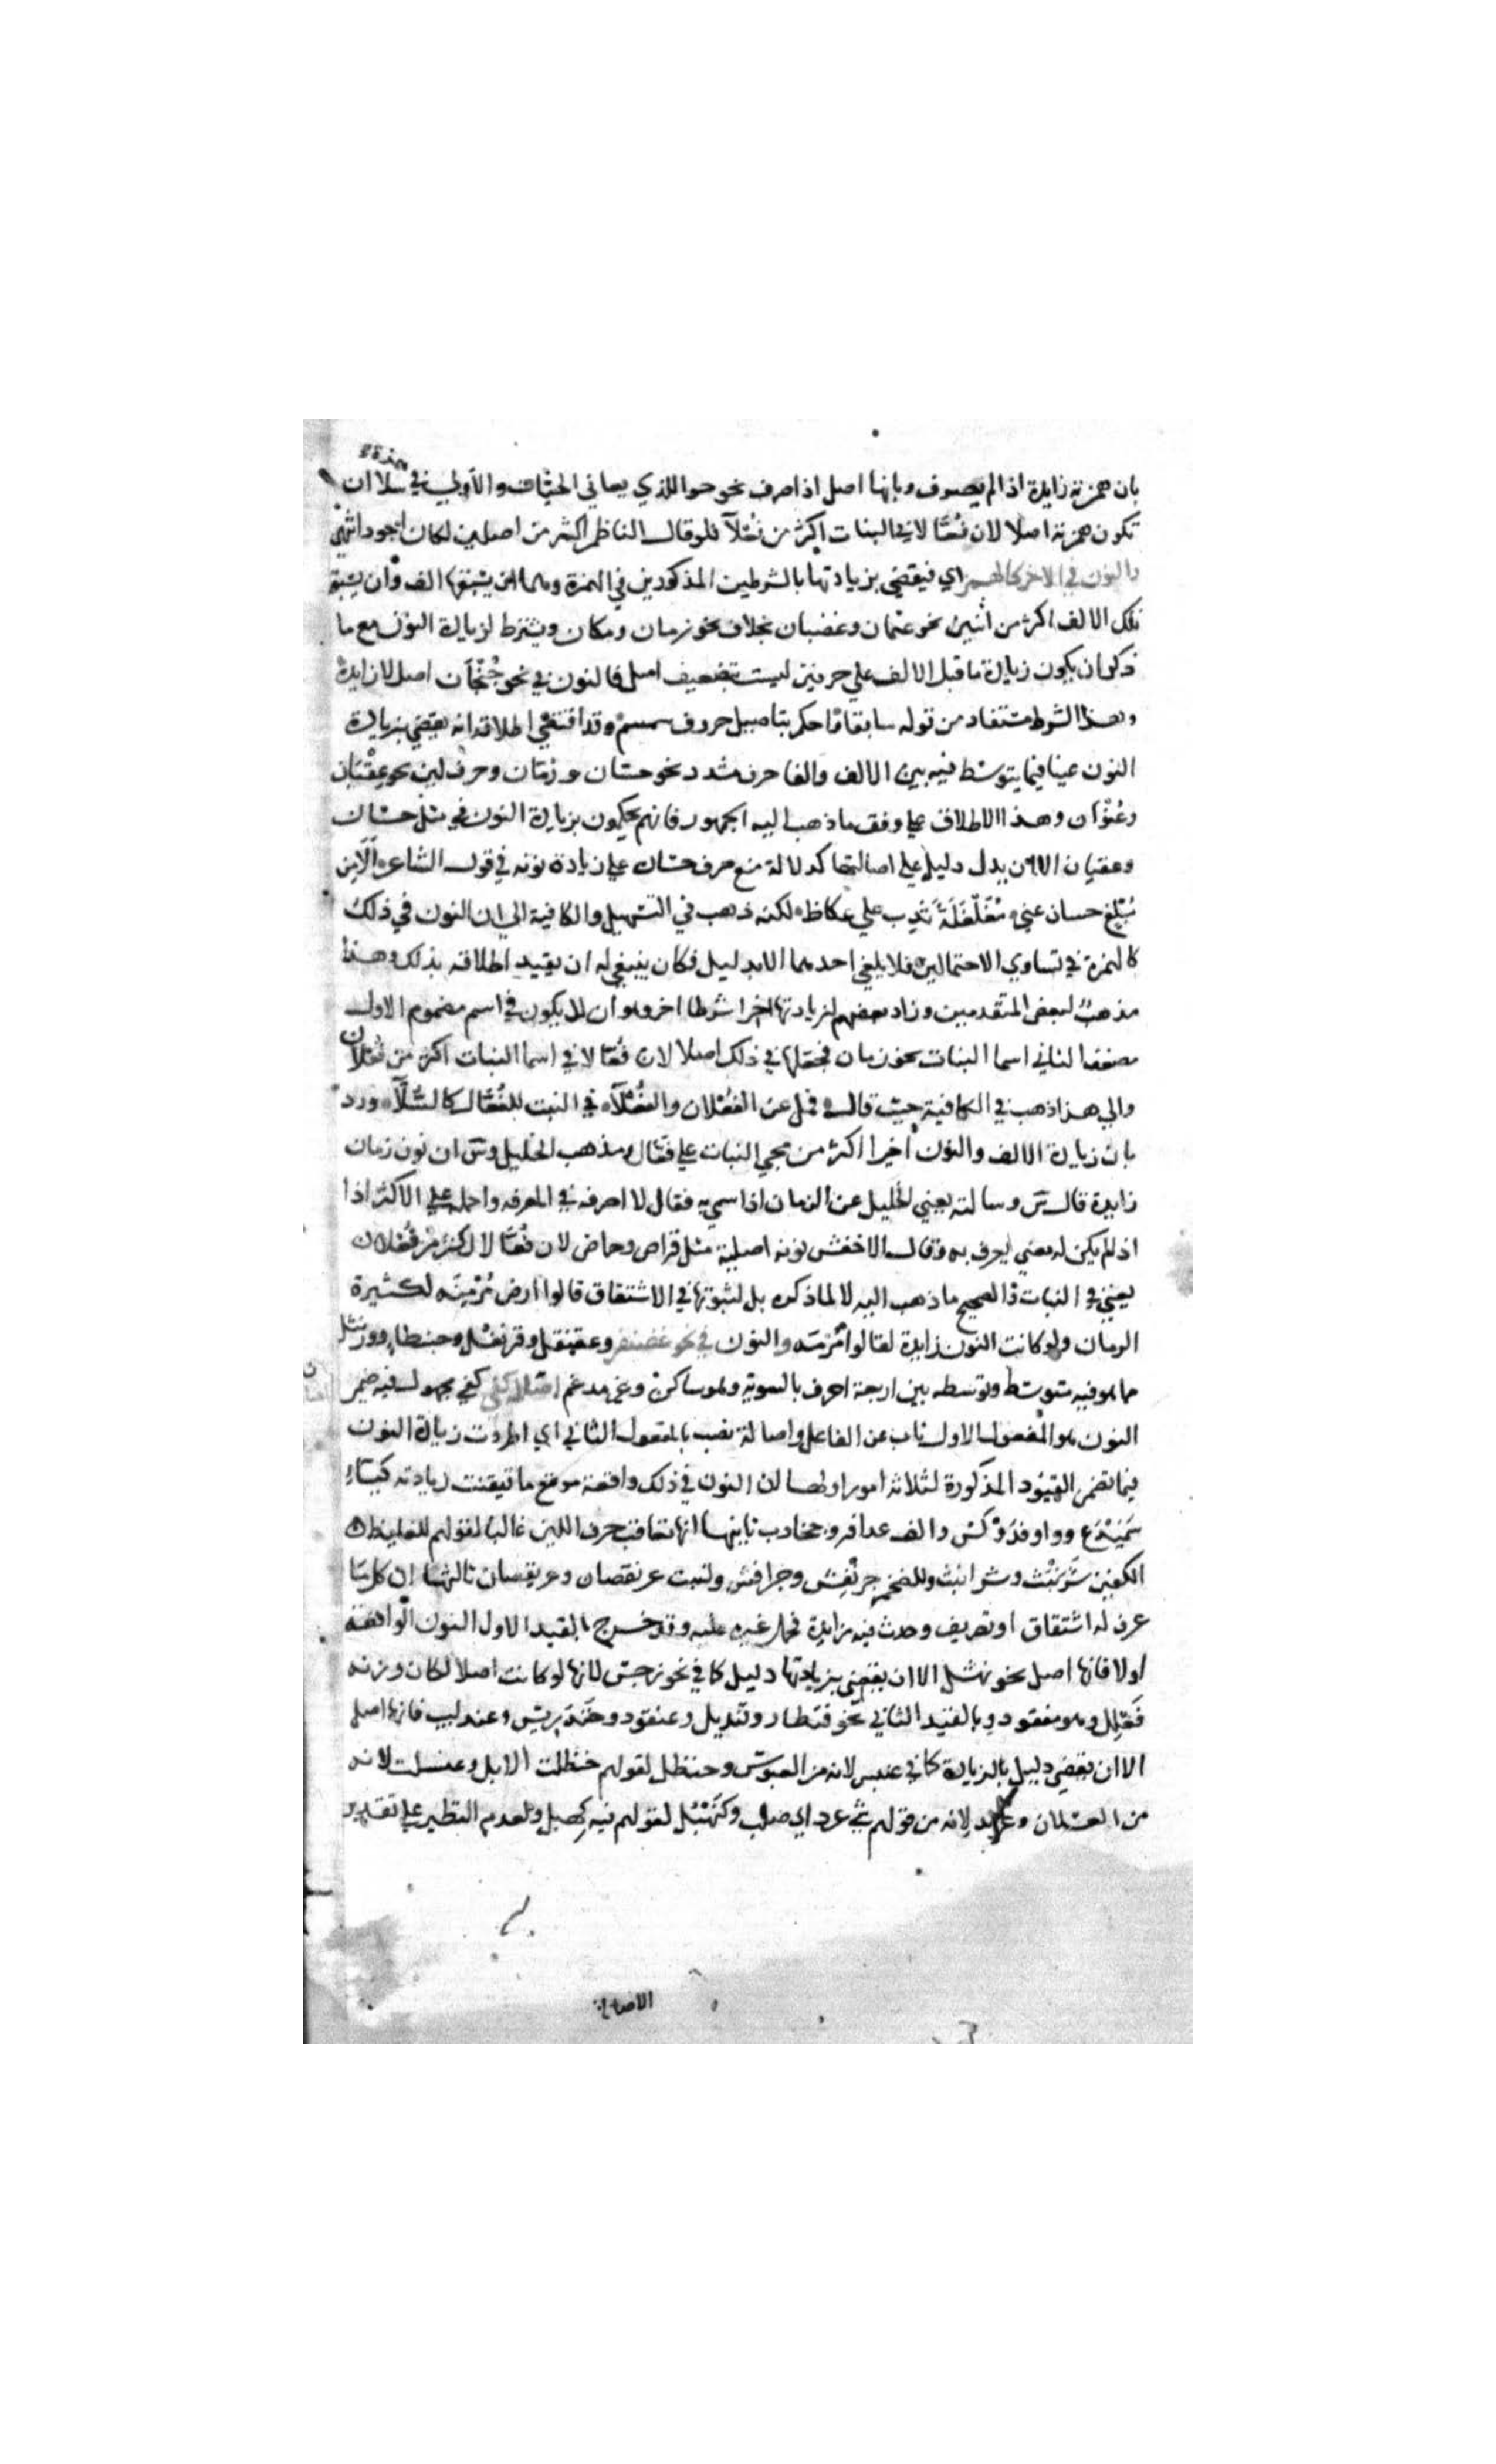 بان همزته زايدة اذا لم يصرف وبانها اصل اذا صرف نحو حوا للذي يعاني الحيات والاولي في سلا ان
همزة
تكون همزته اصلا لان فعالا في النبات اكثر من فعلآ فلو قال الناظم اكثر من اصلين لكان اجود انتهي
والنون في الاخر كالهمز اي فيقضي بزيادتها بالشرطين المذكورين في الهمزة وهما ان يسبقها الف وان يسبق
تلك الالف اكثر من اثنين نحو عثمان وغضبان بخلاف نحو زمان ومكان ويشترط لزيادة النون مع ما
ذكر ان يكون زيادة ما قبل الالف علي حرفين ليست بتضعيف اصل فالنون في نحو جنجان اصل لا زايدة
وهذا الشرط مستفاد من قوله سابقا واحكم بتاصيل حروف سمسم وقد اقتضي اطلاقه انه يقضي بزيادة
النون عينا فيما يتوسط فيه بين الالف والفا حرف مشدد نحو حسان ورمان وحرف لين نحو عقيان
وعنوان وهذا الاطلاق علي وفق ما ذهب اليه الجمهور فانهم يحكمون بزيادة النون في مثل حسان
وعقيان الا ان يدل دليل علي اصالتها كدلالة منع صرف حسان علي زيادة نونه في قول الشاعر الا من
مبلغ حسان عني مغلغلة تدب علي عكاظ لكنه ذهب في التسهيل والكافية الي ان النون في ذلك
كالهمزة في تساوي الاحتمالين فلا يلغي احدهما الا بدليل فكان ينبغي له ان يقيد اطلاقه بذلك وهذا
مذهب لبعض المتقدمين وزاد بعضهم لزيادتها اخرا شرطا اخر وهو ان لا يكون في اسم مضموم الاول
مضعف الثاني اسما لنبات نحو رمان فجعلها في ذلك اصلا لان فعالا في اسما النبات اكثر من فعلان
والي هذا ذهب في الكافية حيث قال فمل عن الفعلان والفعلاء في النبت للفعال كالسلاء ورد
بان زيادة الالف والنون اخيرا اكثر من مجي النبات علي فعال ومذهب الخليل وس ان نون رمان
زايدة قال س وسالته يعني الخليل عن الرمان اذا سمي به فقال لا اصرفه في المعرفه واحمله علي الاكثر اذا
اذ لم يكن له معني يعرف به وقال الاخفش نونه اصلية مثل قراص وحماض لان فعالا اكثر من فعلان
يعني في النبات والصحيح ما ذهب اليه لا لما ذكره بل لثبوتها في الاشتقاق قالوا ارض مرمنه لكثيرة
الرمان ولو كانت النون زايدة لقالوا مرمه والنون في نحو غضنفر وعقنقل وقرنفل وحبنطا وورنتل
مما هو فيه متوسط وتوسطه بين اربعة احرف بالسوية وهو ساكن وغير مدغم اصالة كفي كفي مجهول فيه ضمير
النون هو المفعول الاول ناب عن الفاعل واصالة نصب بالمفعول الثاني اي اطردت زيادة النون
فيما تضمن القيود المذكورة لثلاثة امور اولها ان النون في ذلك واقعة موقع ما تيقنت زيادته كياء
سميدع وواو فدوكس والف عدافر وجخادب ثانيها انها تعاقب حرف اللين غالبا لقولهم للغليظ
الكفين شرنبث وشرابث وللضخم جرنفش وجرافش ولنبت عرنقصان وعريقصان ثالثها ان كل ما
عرف له اشتقاق او تصريف وجدت فيه زايدة فحمل غيره عليه وقد خرج بالقيد الاول النون الواقعة
اولا فانها اصل نحو نهشل الا ان يقضي بزيادتها دليل كما في نحو نرجس لانها لو كانت اصلا لكان وزنه
فعلل وهو مفقود وبالقيد الثاني نحو قنطار وقنديل وعنقود وخندريس وعندليب فانها اصل
الا ان يقضي دليل بالزيادة كما في عنبس لانه من العبوس وحنظل لقولهم حظلت الابل وعنسل لانه
من العسلان وعرند لانه من قولهم شي عرد اي صلب وكنهبل لقولهم فيه كهبل ولعدم النظير علي تقدير
الاصالة